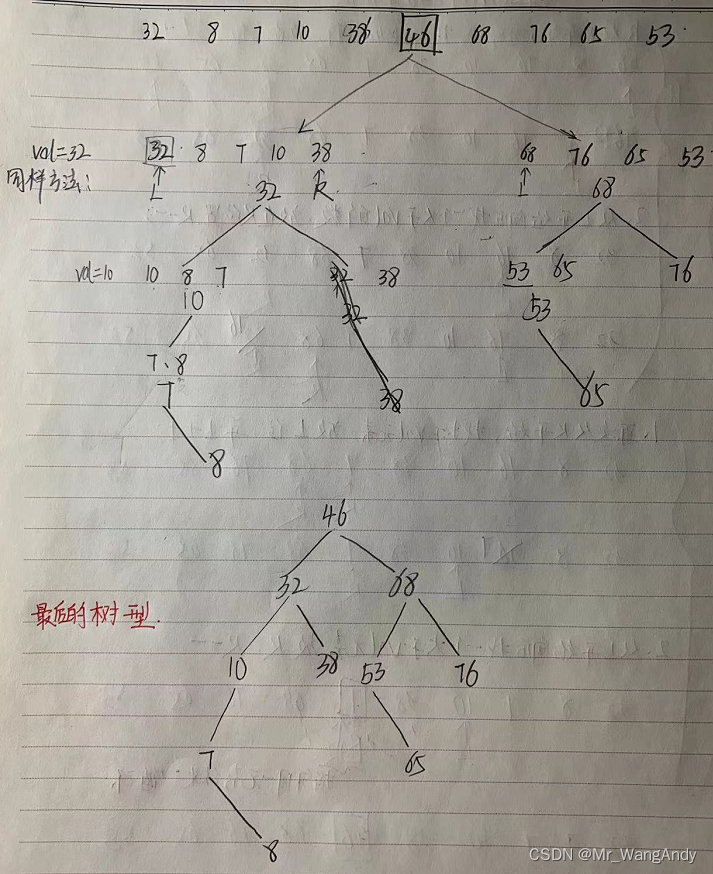 32 8 7 10 38 46 68 76 65 53
val=32 32 8 7 10 38 68 76 65 53
同样方法: L R L
32 68
val=10 10 8 7 32 38 53 65 76
10 32 53
7、8
7 38 65
8
46
32 68
最后的树型.
10 38 53 76
7 65
8
CSDN @Mr_WangAndy